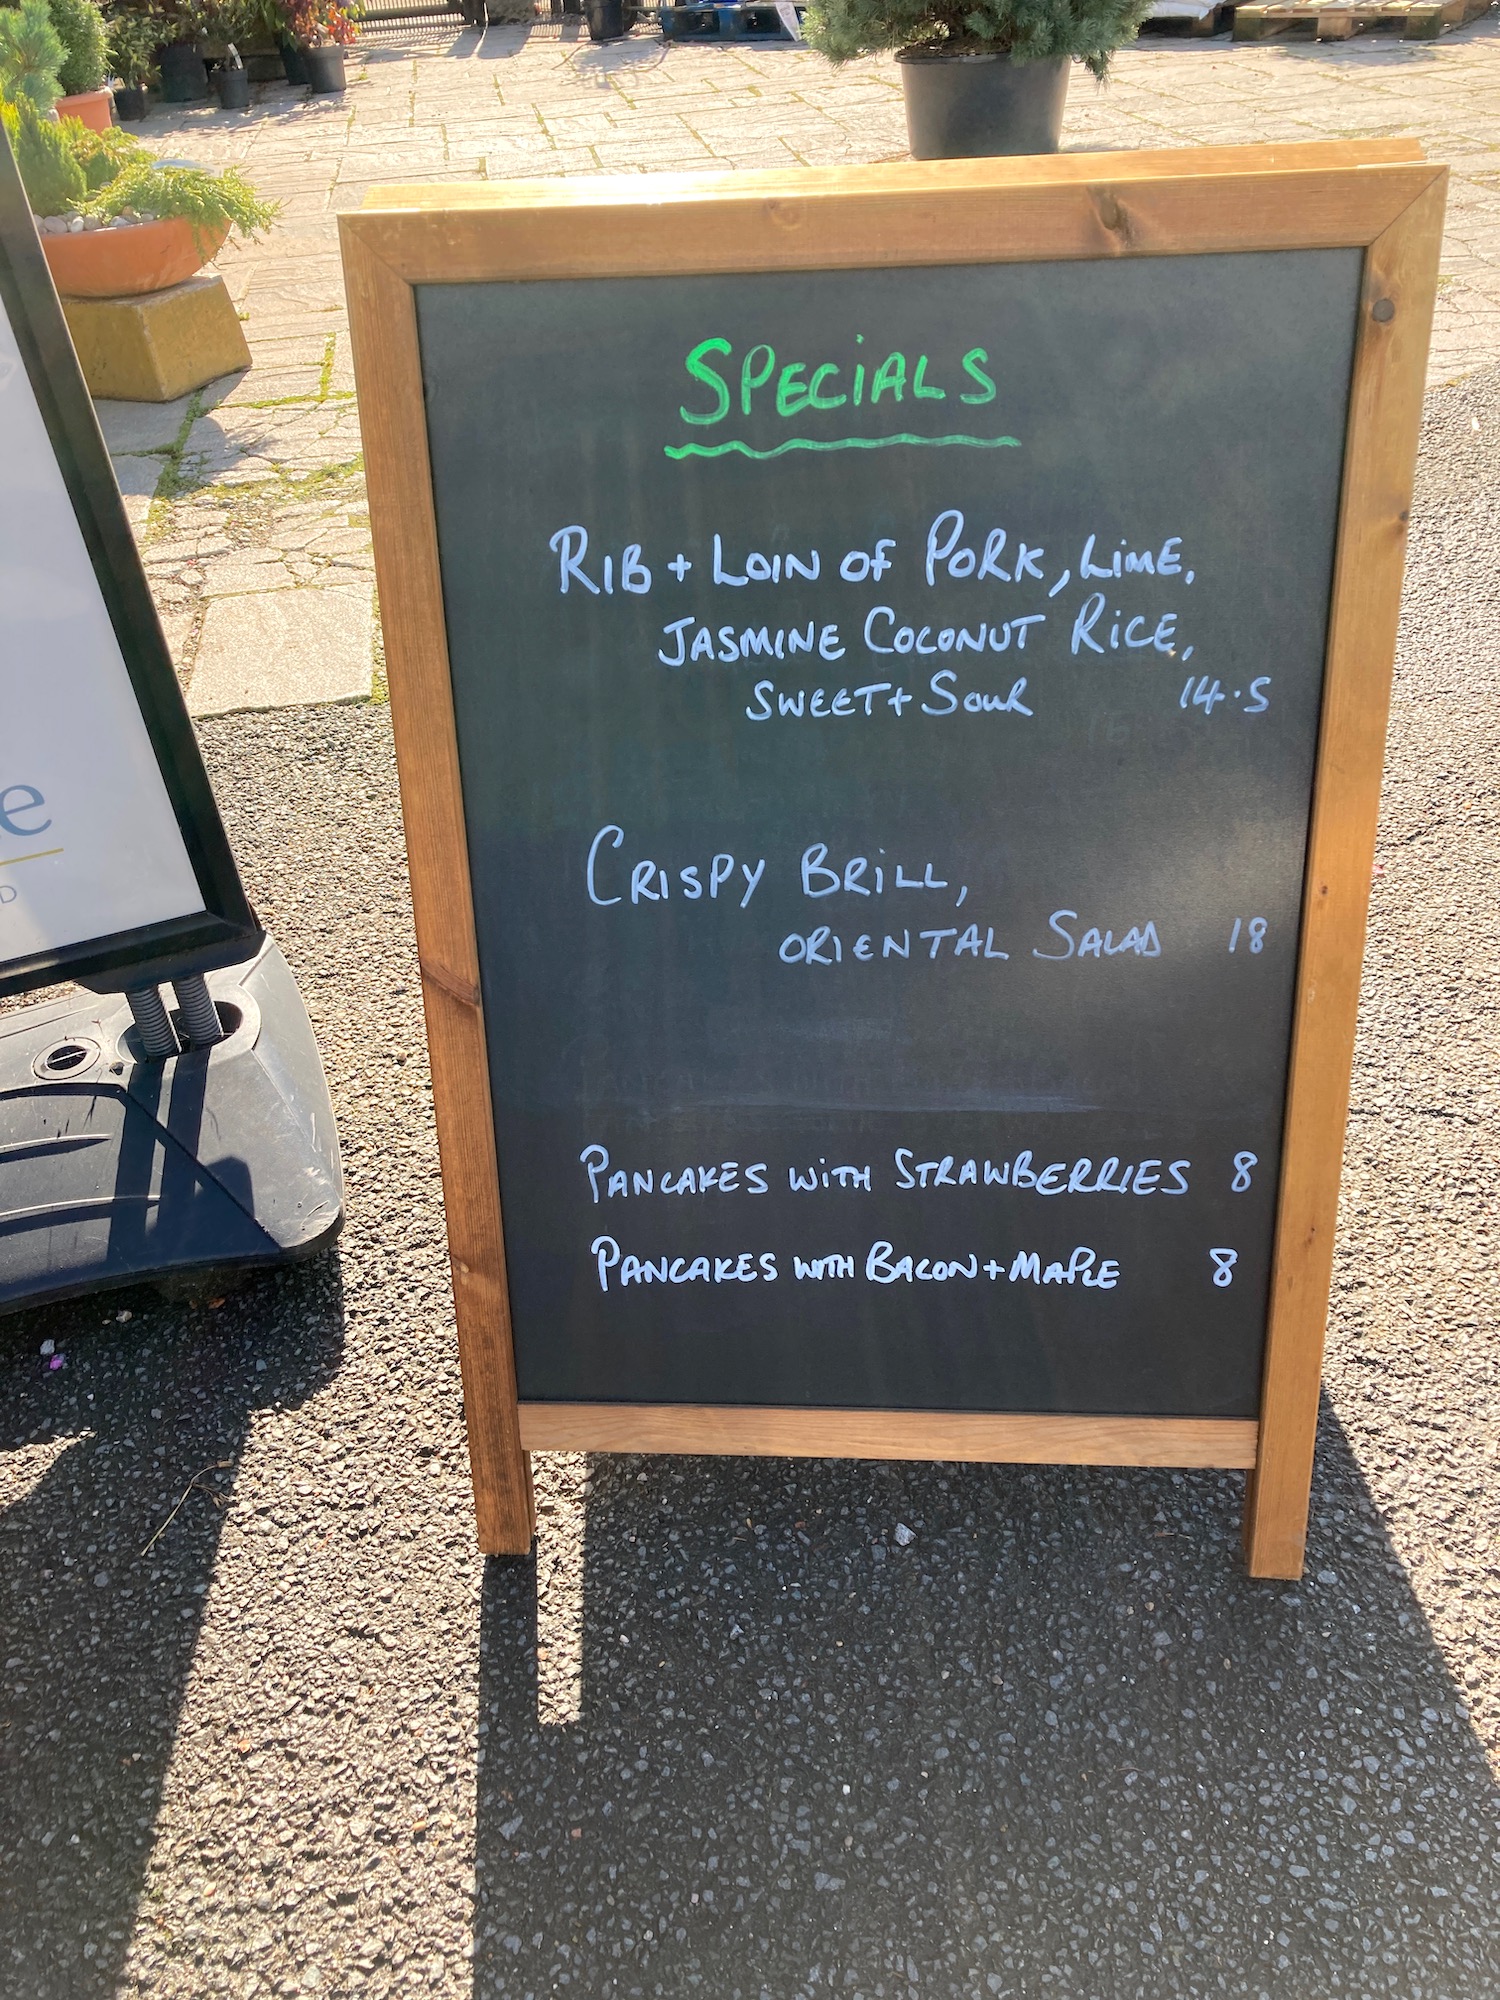 SPECIALS
RIB + LOIN OF PORK, LIME,
JASMINE COCONUT RICE,
SWEET + SOUR 14.5
CRISPY BRILL,
ORIENTAL SALAD 18
PANCAKES WITH STRAWBERRIES 8
PANCAKES WITH BACON + MAPLE 8